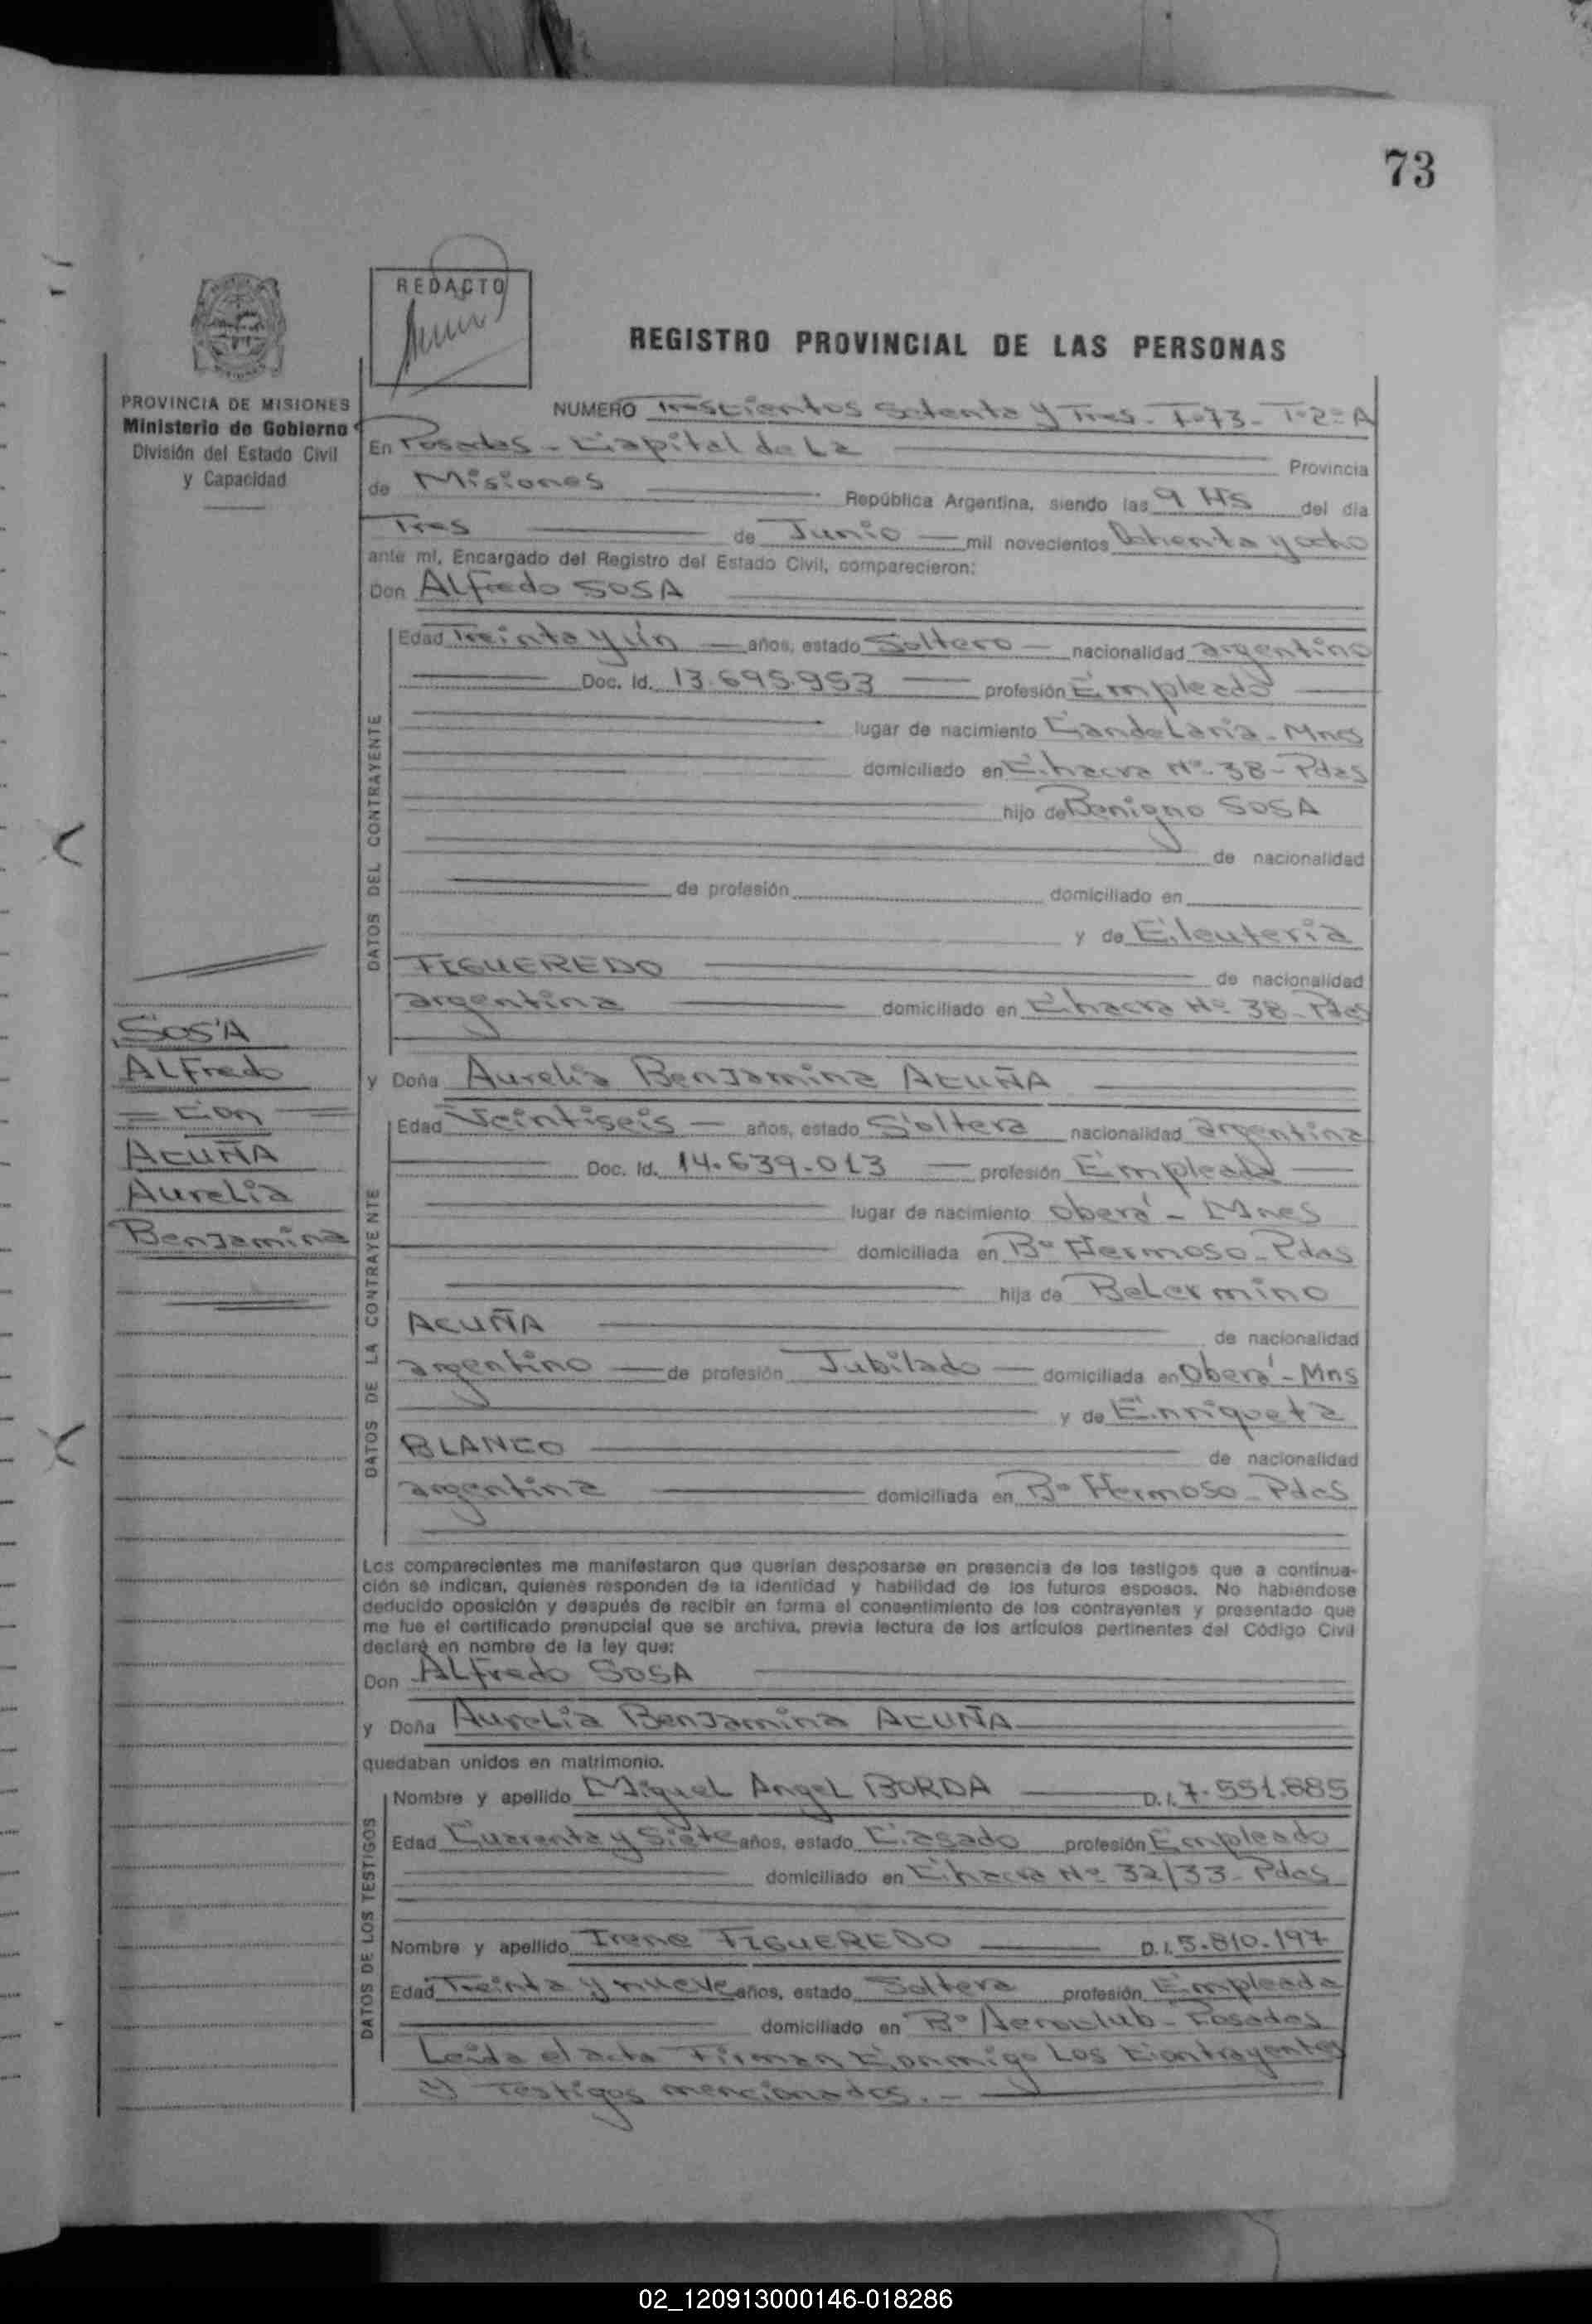 73
REDACTO
REGISTRO PROVINCIAL DE LAS PERSONAS
PROVINCIA DE MISIONES
Ministerio de Gobierno
División del Estado Civil
y Capacidad
NUMERO Trescientos Setenta y Tres - F=73 - T=2=A
En Posadas - Capital de La Provincia
de Misiones República Argentina, siendo las 9 HS del día
Tres de Junio mil novecientos Ochenta y ocho
ante mí, Encargado del Registro del Estado Civil, comparecieron:
Don ALfredo SOSA
DATOS DEL CONTRAYENTE
Edad Treinta y ún años, estado Soltero nacionalidad argentino
Doc. Id. 13.695.953 profesión Empleado
lugar de nacimiento CandeLaria - Mnes
domiciliado en Chacra Nº 38 - Pdas
hijo de Benigno SOSA
de nacionalidad
de profesión domiciliado en
y de Eleuteria
FIGUEREDO de nacionalidad
argentina domiciliado en Chacra Nº 38 - Pdas
SOSA
ALFredo
= Con =
ACUÑA
AureLia
BenJamina
y Doña AureLia BenJamina ACUÑA
DATOS DE LA CONTRAYENTE
Edad Veintiseis años, estado Soltera nacionalidad argentina
Doc. Id. 14.639.013 profesión Empleada
lugar de nacimiento Oberá - Mnes
domiciliada en Bº Hermoso - Pdas
hija de BeLermino
ACUÑA de nacionalidad
argentino de profesión Jubilado domiciliada en Oberá - Mns
y de Enriqueta
BLANCO de nacionalidad
argentina domiciliada en Bº Hermoso - Pdas
Los comparecientes me manifestaron que querían desposarse en presencia de los testigos que a continua-
ción se indican, quienes responden de la identidad y habilidad de los futuros esposos. No habiéndose
deducido oposición y después de recibir en forma el consentimiento de los contrayentes y presentado que
me fue el certificado prenupcial que se archiva, previa lectura de los artículos pertinentes del Código Civil
declaré en nombre de la ley que:
Don ALfredo SOSA
y Doña AureLia BenJamina ACUÑA
quedaban unidos en matrimonio.
DATOS DE LOS TESTIGOS
Nombre y apellido MigueL AngeL BORDA D.I. 7.551.885
Edad Cuarenta y Siete años, estado Casado profesión Empleado
domiciliado en Chacra Nº 32/33 - Pdas
Nombre y apellido Irene FIGUEREDO D.I. 5.810.197
Edad Treinta y nueve años, estado Soltera profesión Empleada
domiciliado en Bº Aeroclub - Posadas
Leida el acta Firman Conmigo Los Contrayentes
y Testigos mencionados. -
02_120913000146-018286